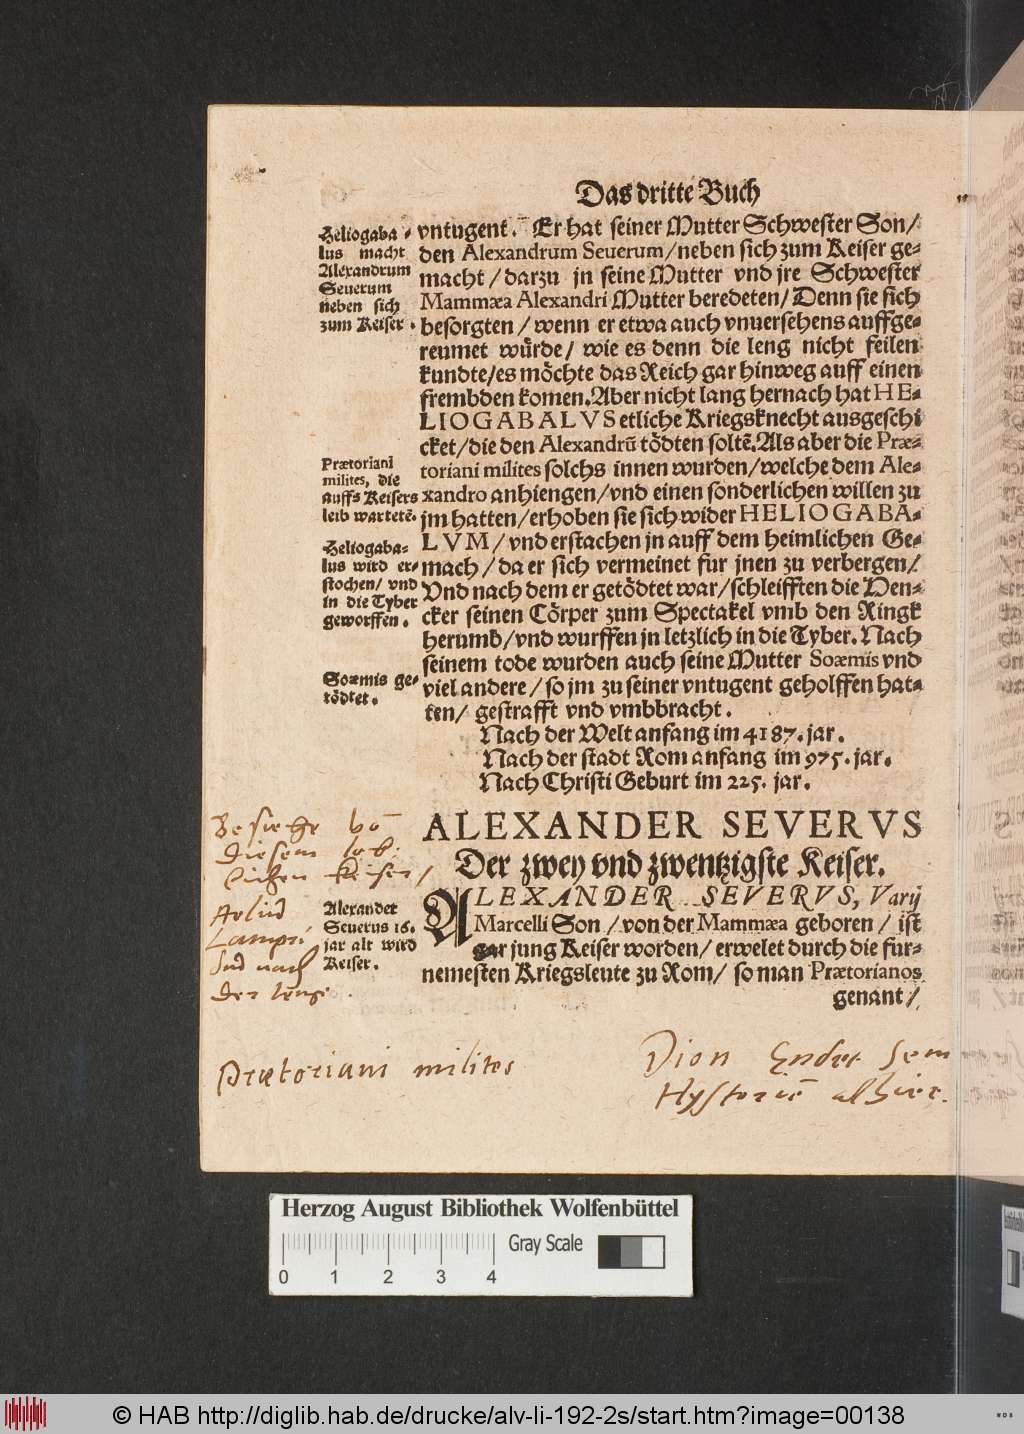 Das dritte Buch
vntugent. Er hat seiner Mutter Schwester Son/
den Alexandrum Seuerum/neben sich zum Keiser ge-
macht/darzu jn seine Mutter vnd jre Schwester
Mammæa Alexandri Mutter beredeten/Denn sie sich
besorgten/wenn er etwa auch vnuersehens auffge-
reumet würde/ wie es denn die leng nicht feilen
kundte/es möchte das Reich gar hinweg auff einen
frembden komen. Aber nicht lang hernach hat HE-
LIOGABALVS etliche Kriegsknecht ausgeschi
cket/die den Alexandrū tödten soltē. Als aber die Præ-
toriani milites solchs innen wurden/welche dem Ale-
xandro anhiengen/vnd einen sonderlichen willen zu
jm hatten/erhoben sie sich wider HELIOGABA-
LVM/vnd erstachen jn auff dem heimlichen Ge-
mach/da er sich vermeinet fur jnen zu verbergen/
Vnd nach dem er getödtet war/schleifften die Hen-
cker seinen Cörper zum Spectakel vmb den Ringk
herumb/vnd wurffen jn letzlich in die Tyber. Nach
seinem tode wurden auch seine Mutter Soæmis vnd
viel andere/so jm zu seiner vntugent geholffen hat-
ten/ gestrafft vnd vmbbracht.
Nach der Welt anfang im 4187. jar.
Nach der stadt Rom anfang im 975. jar.
Nach Christi Geburt im 225. jar.
Heliogaba-
lus macht
Alexandrum
Seuerum
neben sich
zum Keiser.
Prætoriani
milites, die
auffs Keisers
leib wartetē.
Heliogaba-
lus wird er-
stochen/ vnd
in die Tyber
geworffen.
Soæmis ge-
tödtet.
ALEXANDER SEVERVS
Der zwey vnd zwentzigste Keiser.
ALEXANDER SEVERVS, Varij
Marcelli Son/von der Mammæa geboren/ ist
gar jung Keiser worden/ erwelet durch die fur-
nemesten Kriegsleute zu Rom/ so man Prætorianos
genant/
Alexander
Seuerus 16.
jar alt wird
Keiser.
Besiehe vō
diesem löb:
lichen Keiser/
Aelius
Lampri
dus nach
der lenge.
Prætoriani milites
Dion Endet sein
Hystoriē alhier.
Herzog August Bibliothek Wolfenbüttel
Gray Scale
0 1 2 3 4
© HAB http://diglib.hab.de/drucke/alv-li-192-2s/start.htm?image=00138